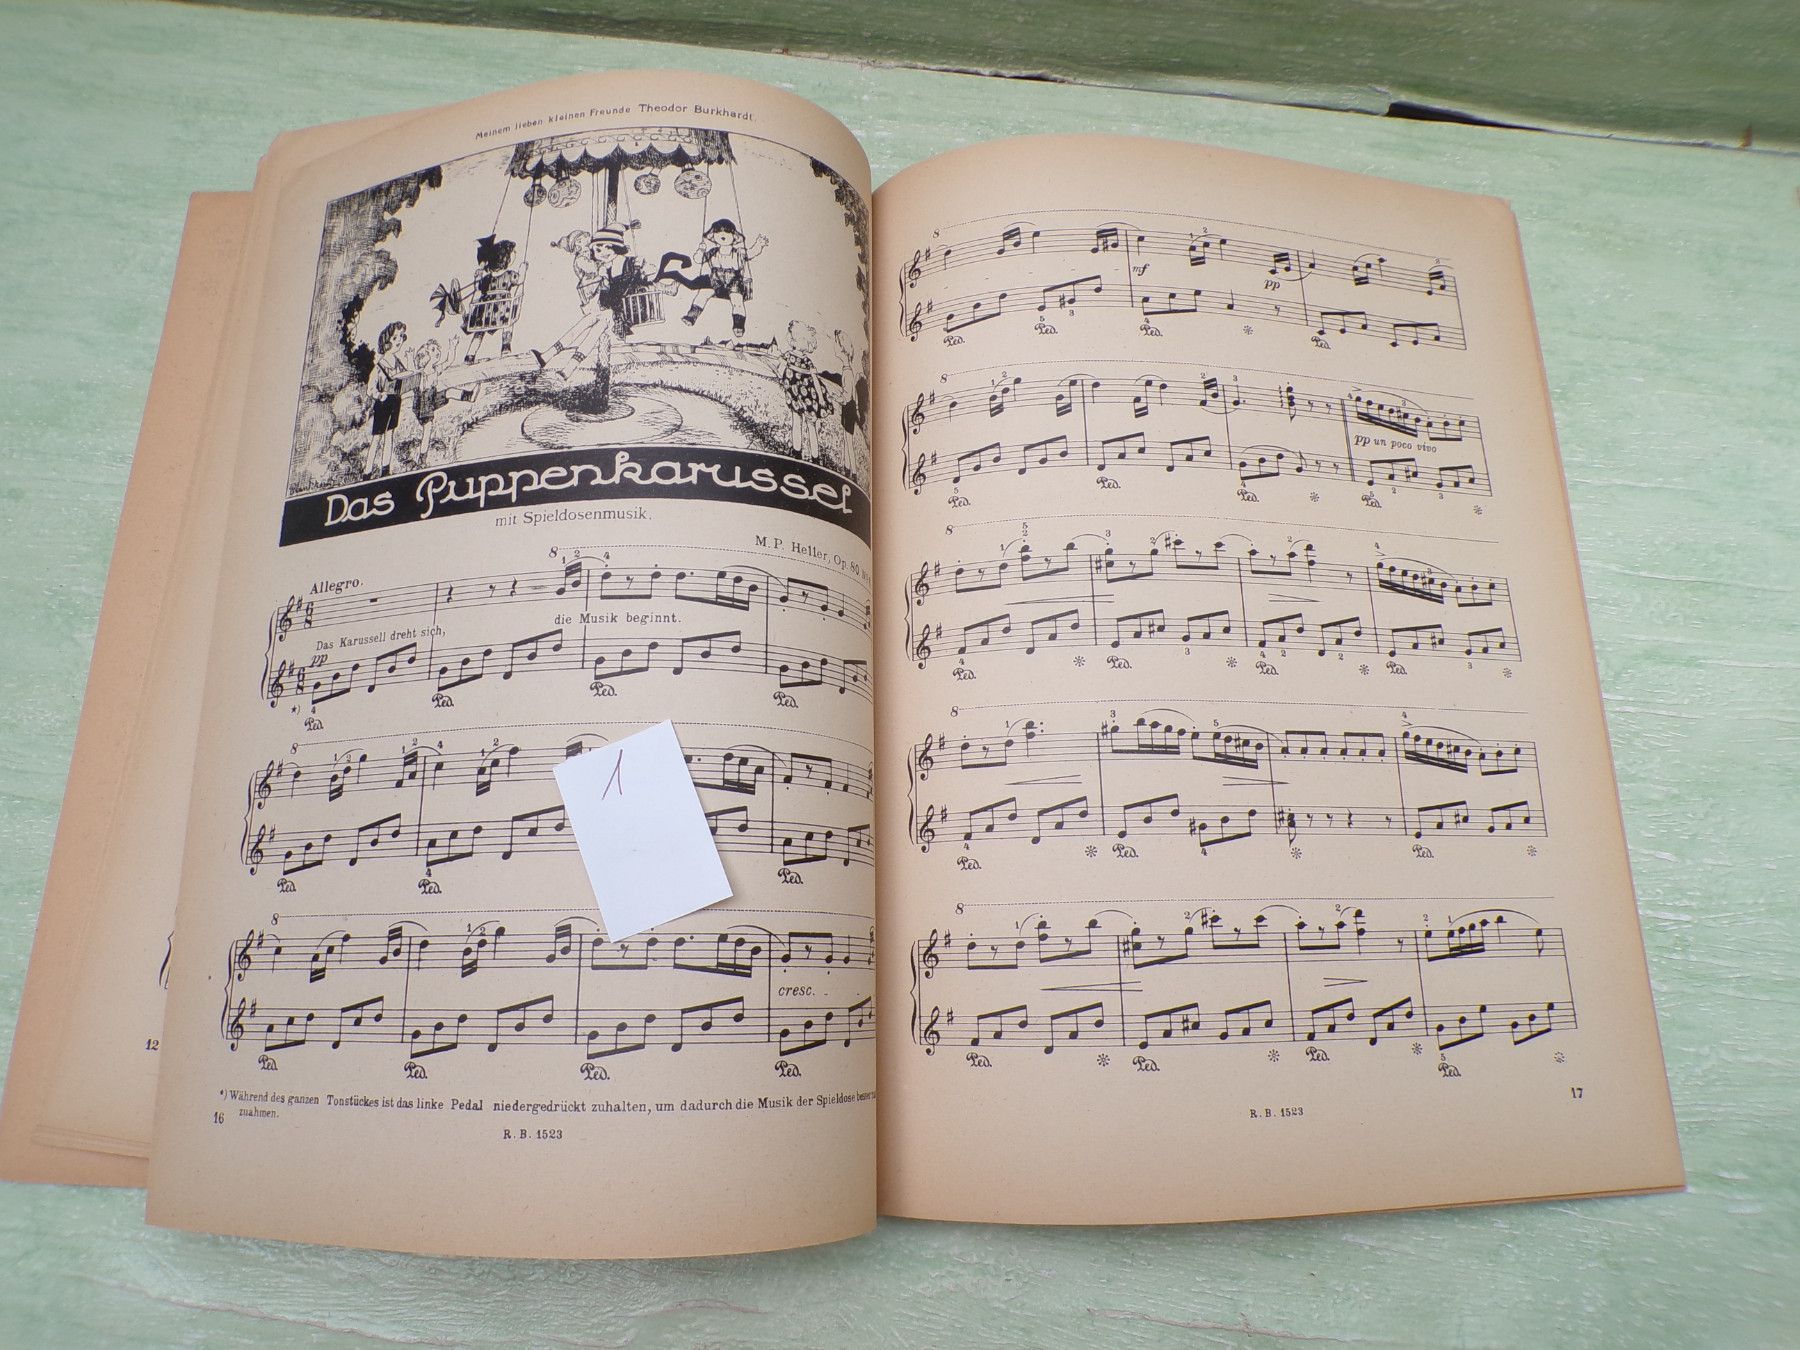 Meinem lieben kleinen Freunde Theodor Burkhardt.
Das Puppenkarussel
mit Spieldosenmusik.
M. P. Heller, Op. 80
Allegro.
Das Karussell dreht sich,
die Musik beginnt.
pp
*)
cresc.
1
*) Während des ganzen Tonstückes ist das linke Pedal niedergedrückt zuhalten, um dadurch die Musik der Spieldose
zuahmen.
16
R. B. 1523
12
mf
pp
pp un poco vivo
R. B. 1523
17